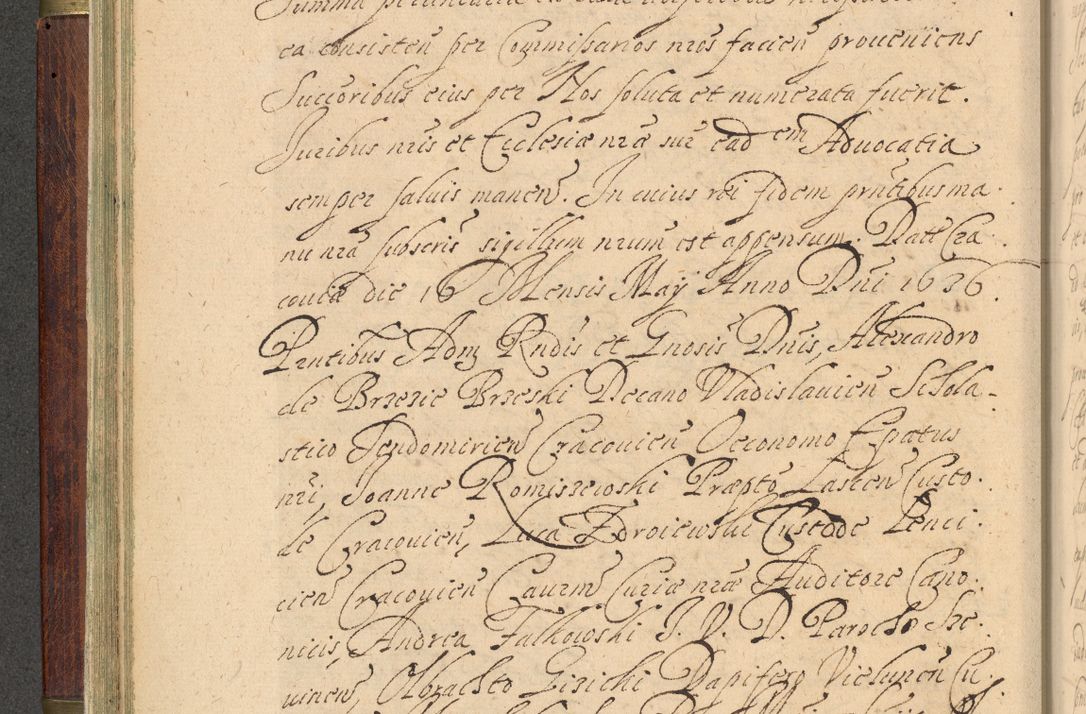 Summa
ea consisteñ per Commissarios nros facieñ proueniens
Succoribus eius per Nos soluta et numerata fuerit.
Juribus nris et Ecclesiæ nræ sur ead em Aduocatia
semper saluis maneñ. In cuius rei fidem prntibus ma.
nu nra subscris sigillum nrum est appensum. Datt Cra.
couiæ die 16 Mensis Maÿ Anno Dni 1636.
Prntibus Adm Rndis et Gnosis Dnis, Alexandro
de Brzezie Brzeski Decano Vladislauieñ Schola-
stico Sendomirieñ Cracouieñ Oeconomo Epatus
nri, Joanne Romiszewski Præpto Lasceñ Custo.
de Cracouieñ, Luca Zdroiewski Custode Lenci.
cieñ Cracouieñ Caurm Curiæ nræ Auditore Cano.
nicis, Andrea Falkowski J. V. D. Parocho Sze.
uineñ, Olbrachto Girichi Dapifero Vieluneñ Cu.